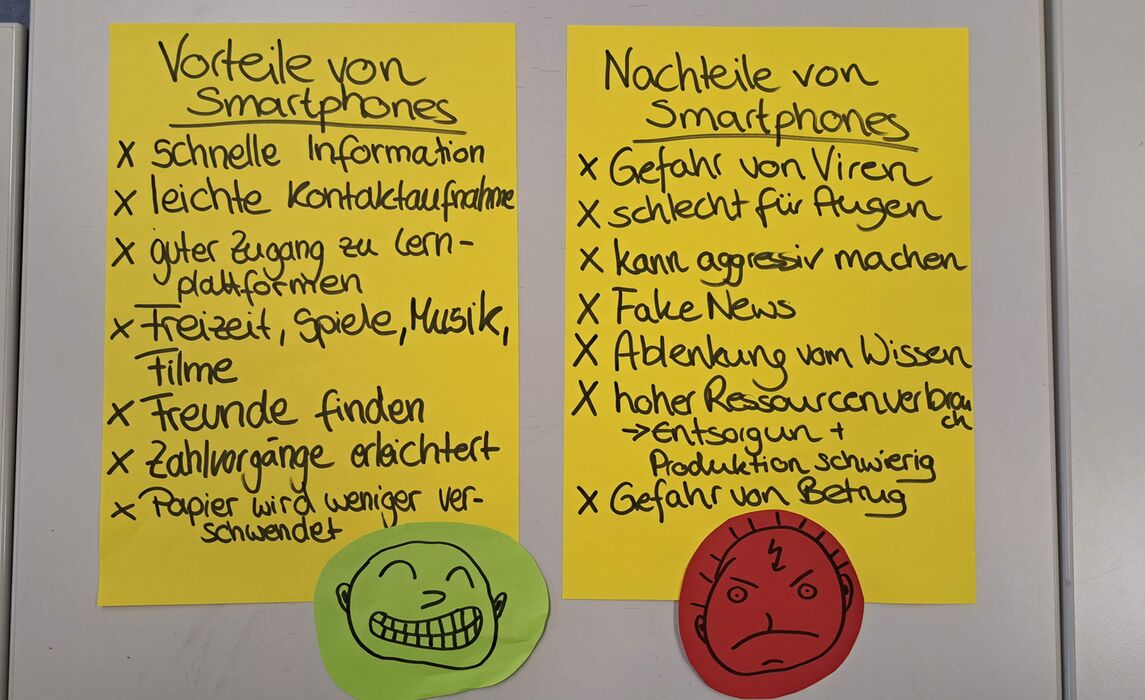 Vorteile von
Smartphones
x schnelle Information
x leichte Kontaktaufnahme
x guter Zugang zu Lern-
plattformen
x Freizeit, Spiele, Musik,
Filme
x Freunde finden
x Zahlvorgänge erleichtert
x Papier wird weniger ver-
schwendet
Nachteile von
Smartphones
x Gefahr von Viren
x schlecht für Augen
x kann aggressiv machen
x Fake News
x Ablenkung vom Wissen
x hoher Ressourcenverbrau
ch
→ Entsorgun +
Produktion schwierig
x Gefahr von Betrug